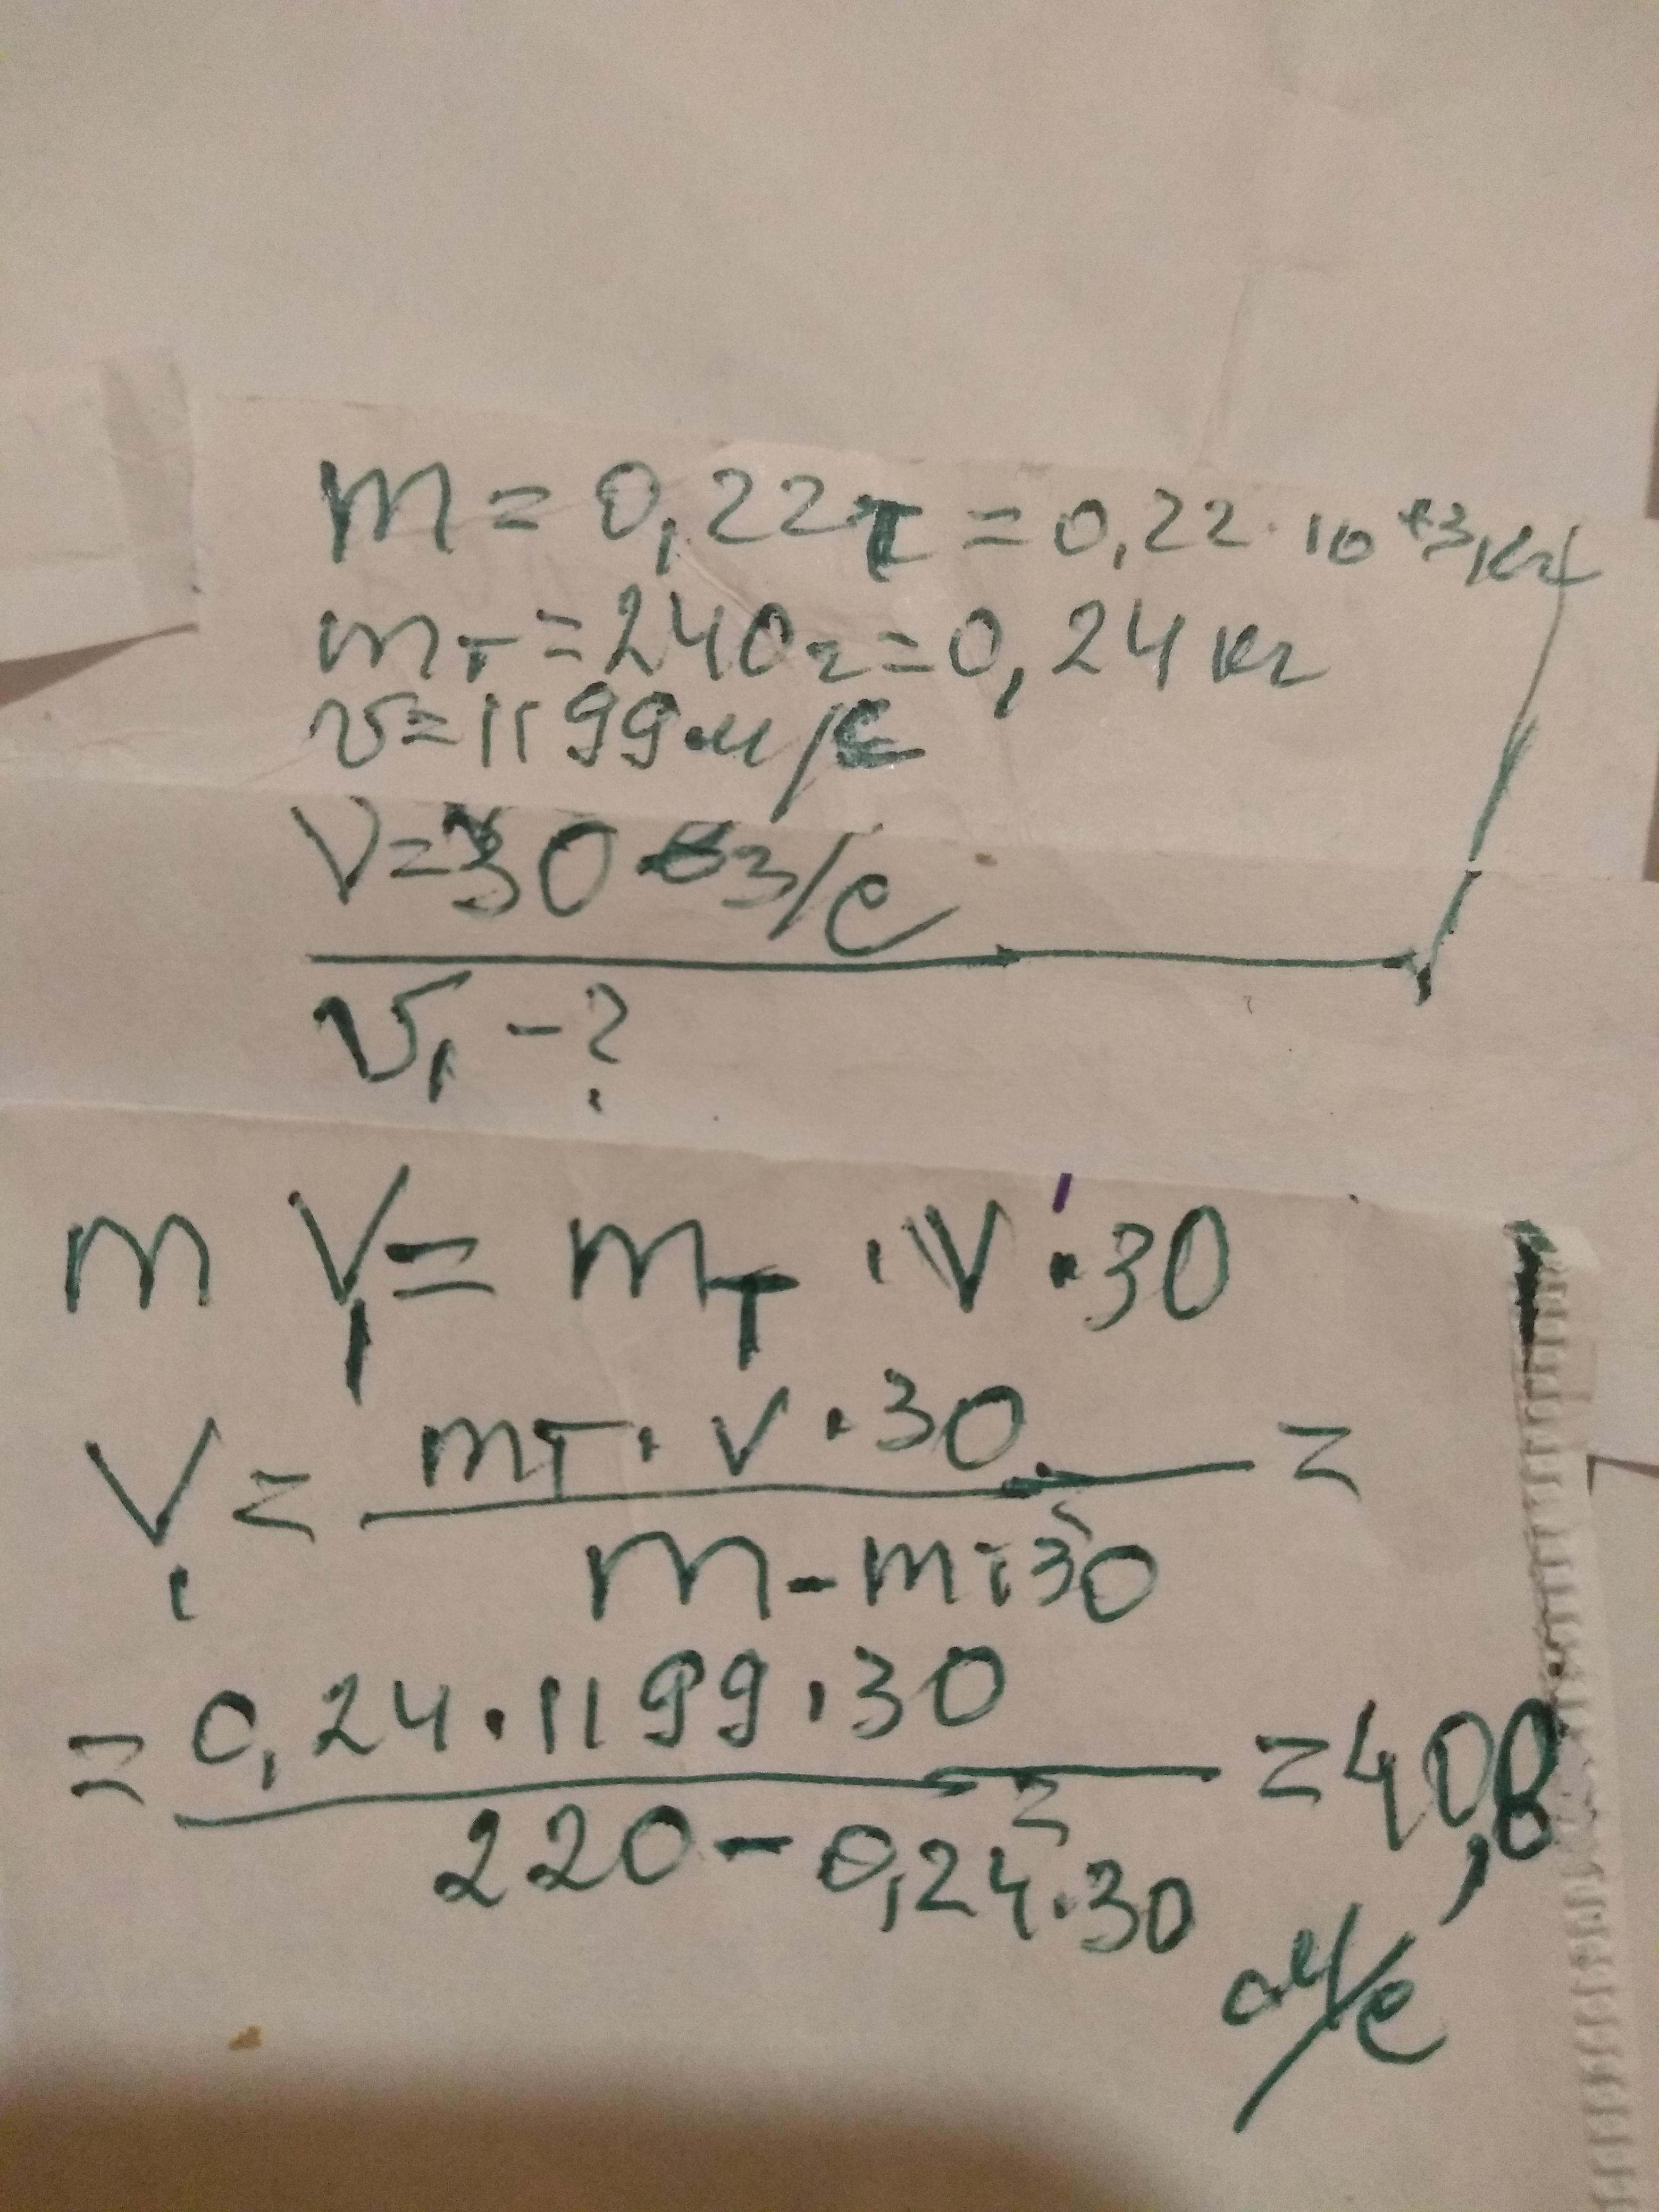 m = 0,22т = 0,22·10⁺³кг
mт = 240г = 0,24 кг
v = 1199 м/с
V = 30 вз/с
v₁ - ?
m V₁ = mт · V · 30
V₁ = mт · V · 30 / m - mт 30 =
= 0,24 · 1199 · 30 / 220 - 0,24 · 30 = 40,8
м/с